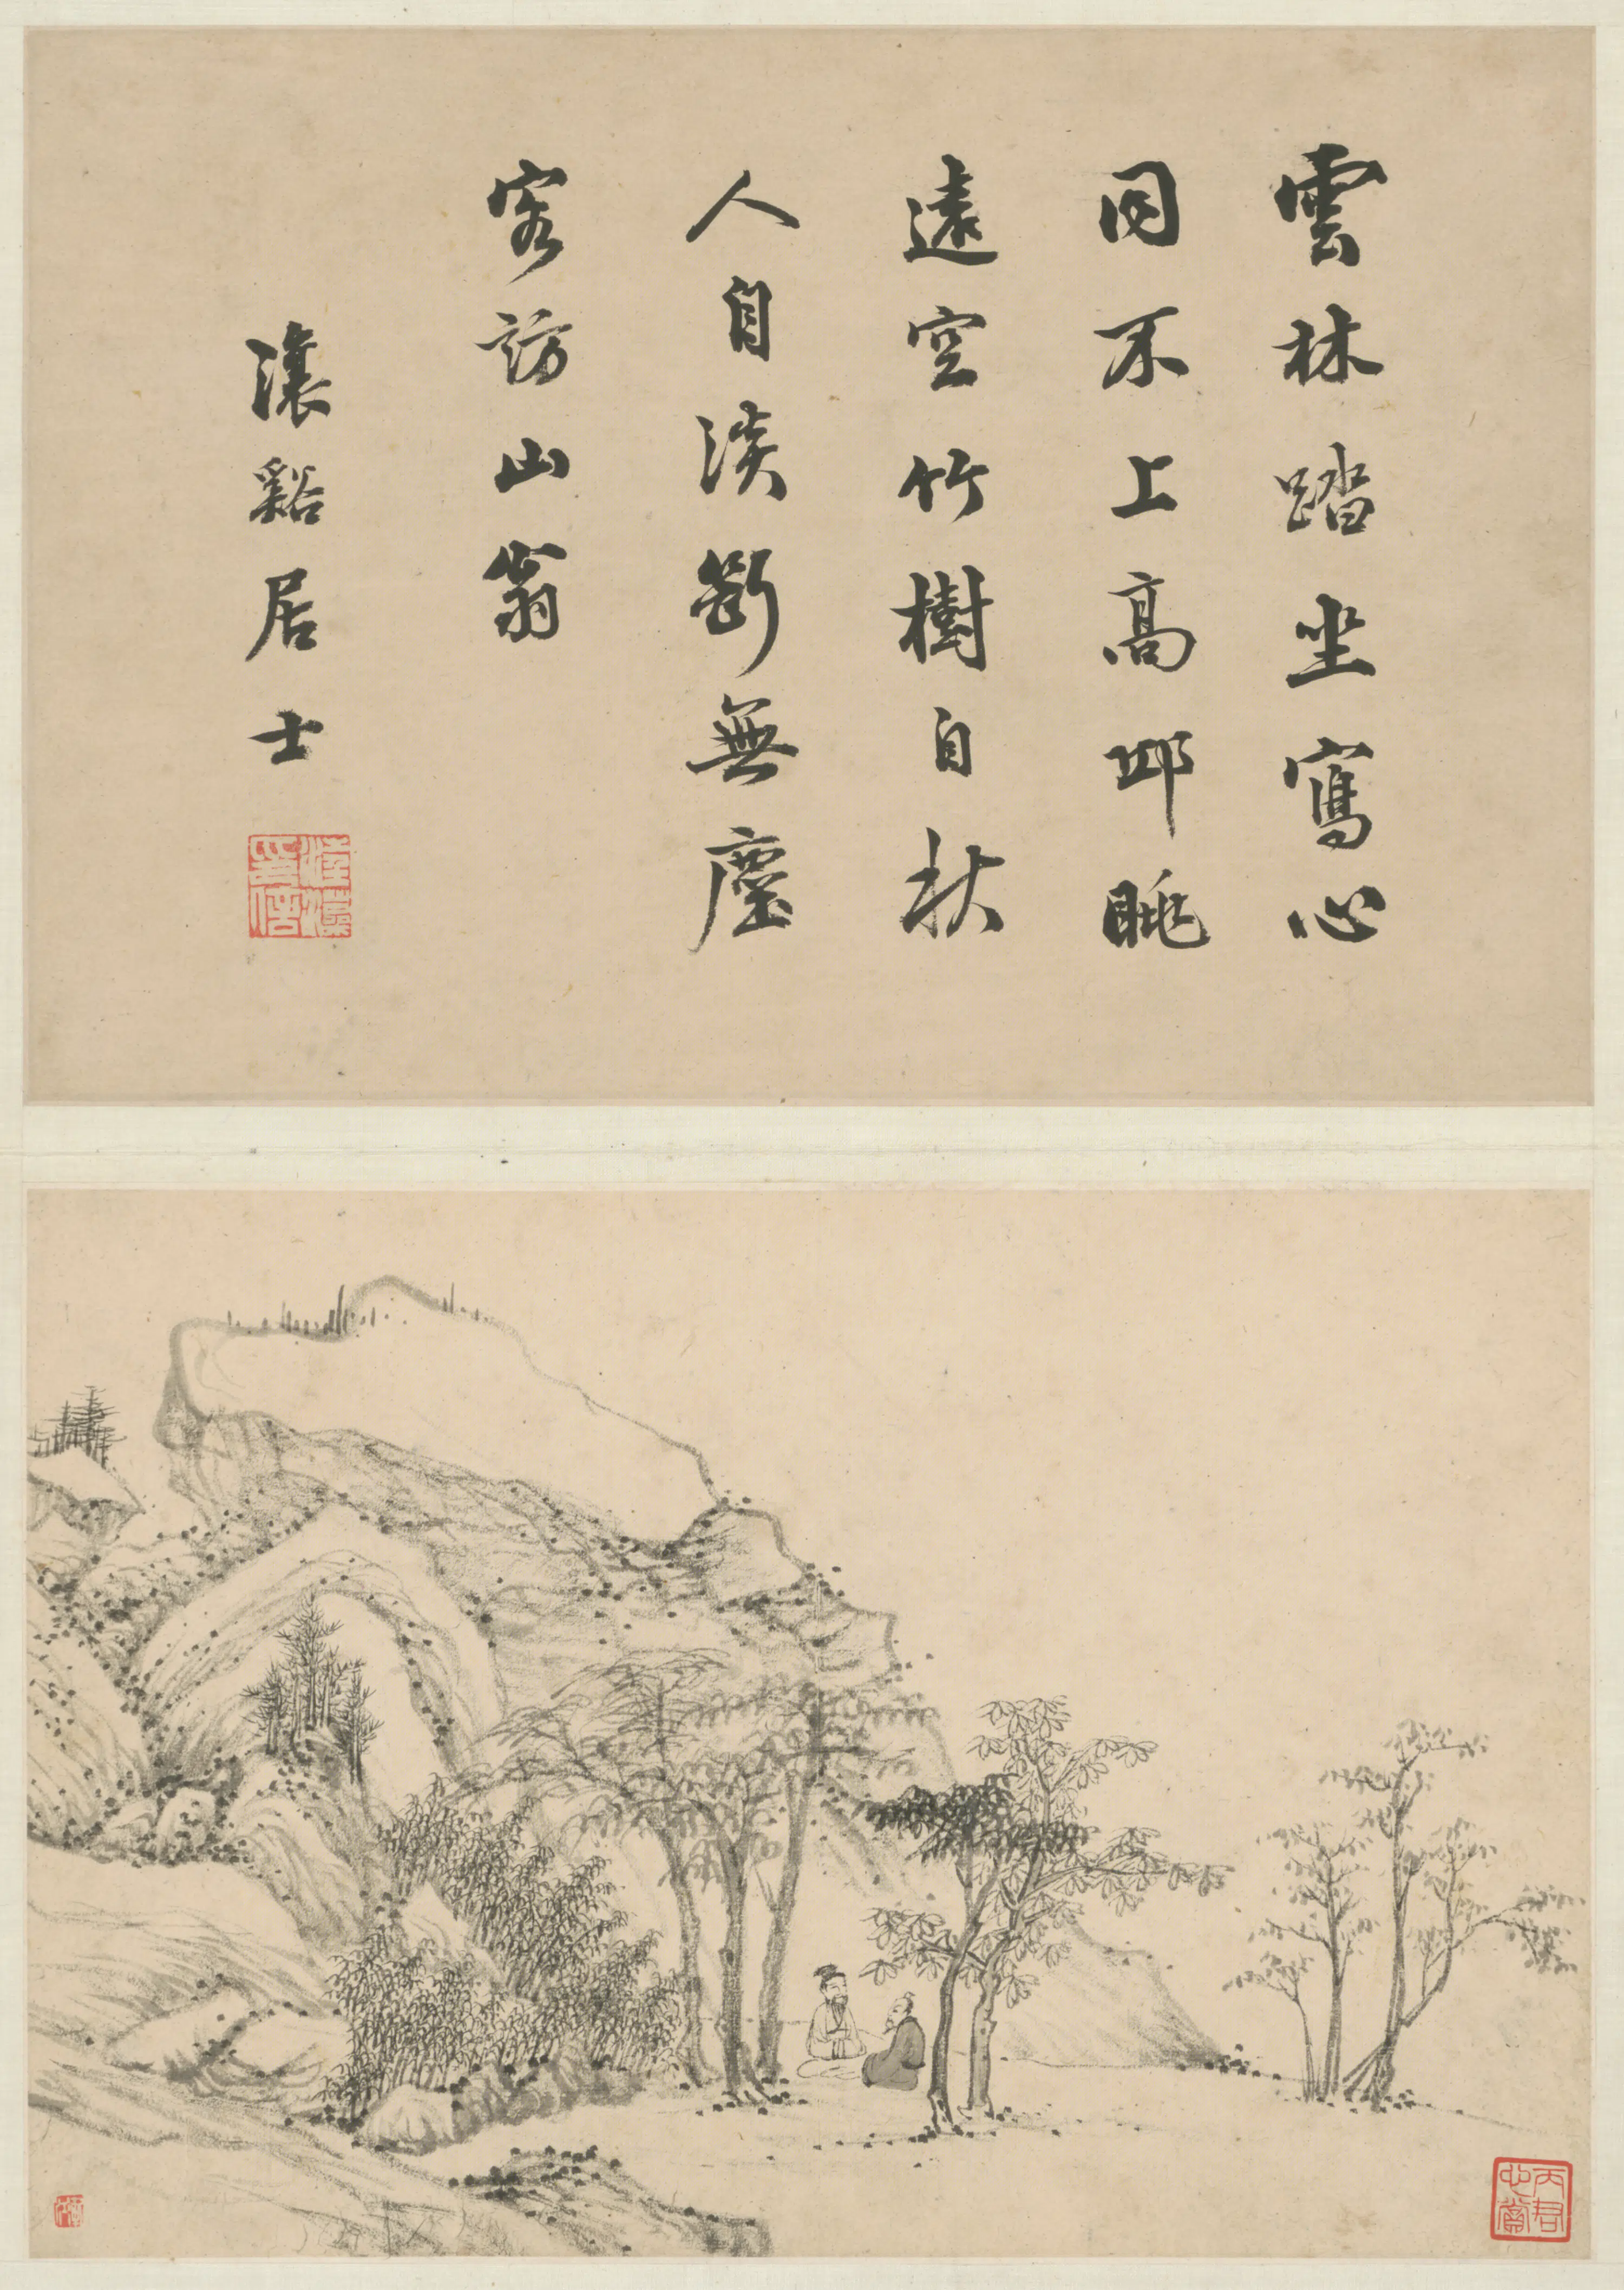 雲林踏坐寫心
同不上高邱眺
遠空竹樹自秋
人自淡斷無塵
客訪山翁
瀼谿居士
印信